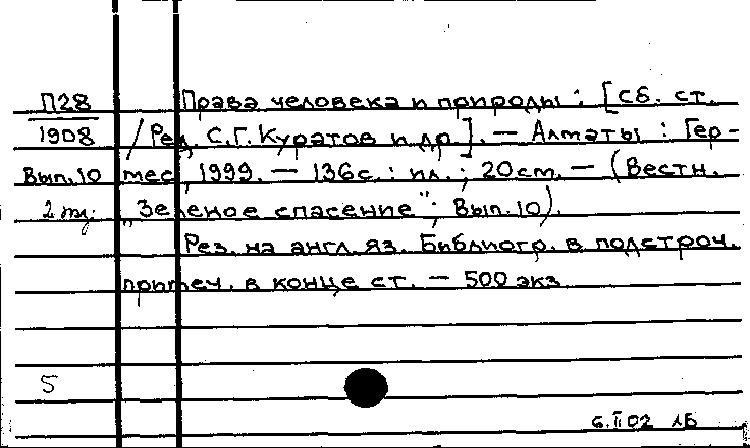 П28 Права человека и природы : [сб. ст.
1908 / Ред. С.Г. Куратов и др.]. — Алматы : Гер-
Вып. 10 мес, 1999. — 136 с. : ил. ; 20 см. — (Вестн.
2 экз. „Зеленое спасение" ; Вып. 10).
Рез. на англ. яз. Библиогр. в подстроч.
примеч. в конце ст. — 500 экз
5
6.II 02 ЛБ